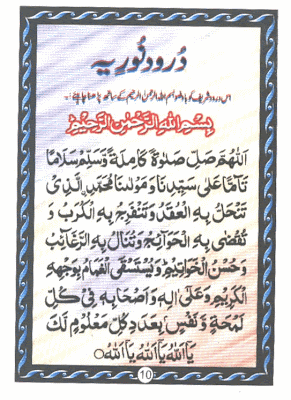 درود نوریہ
اس درود شریف کو باوضو بسم اللہ الرحمٰن الرحیم کے ساتھ پڑھنا چاہئے۔
بِسْمِ اللهِ الرَّحْمٰنِ الرَّحِيْمِ
اَللّٰهُمَّ صَلِّ صَلٰوةً كَامِلَةً وَّسَلِّمْ سَلَامًا
تَآمًّا عَلٰى سَيِّدِنَا وَمَوْلٰنَا مُحَمَّدِ الَّذِىْ
تَنْحَلُّ بِهِ الْعُقَدُ وَتَنْفَرِجُ بِهِ الْكُرَبُ وَ
تُقْضٰى بِهِ الْحَوَآئِجُ وَتُنَالُ بِهِ الرَّغَآئِبُ
وَحُسْنُ الْخَوَاتِيْمِ وَيُسْتَسْقَى الْغَمَامُ بِوَجْهِهِ
الْكَرِيْمِ وَعَلٰى اٰلِهٖ وَاَصْحَابِهٖ فِىْ كُلِّ
لَمْحَةٍ وَّنَفَسٍ بِعَدَدِ كُلِّ مَعْلُوْمٍ لَّكَ
يَا اَللهُ يَا اَللهُ يَا اَللهُ
10